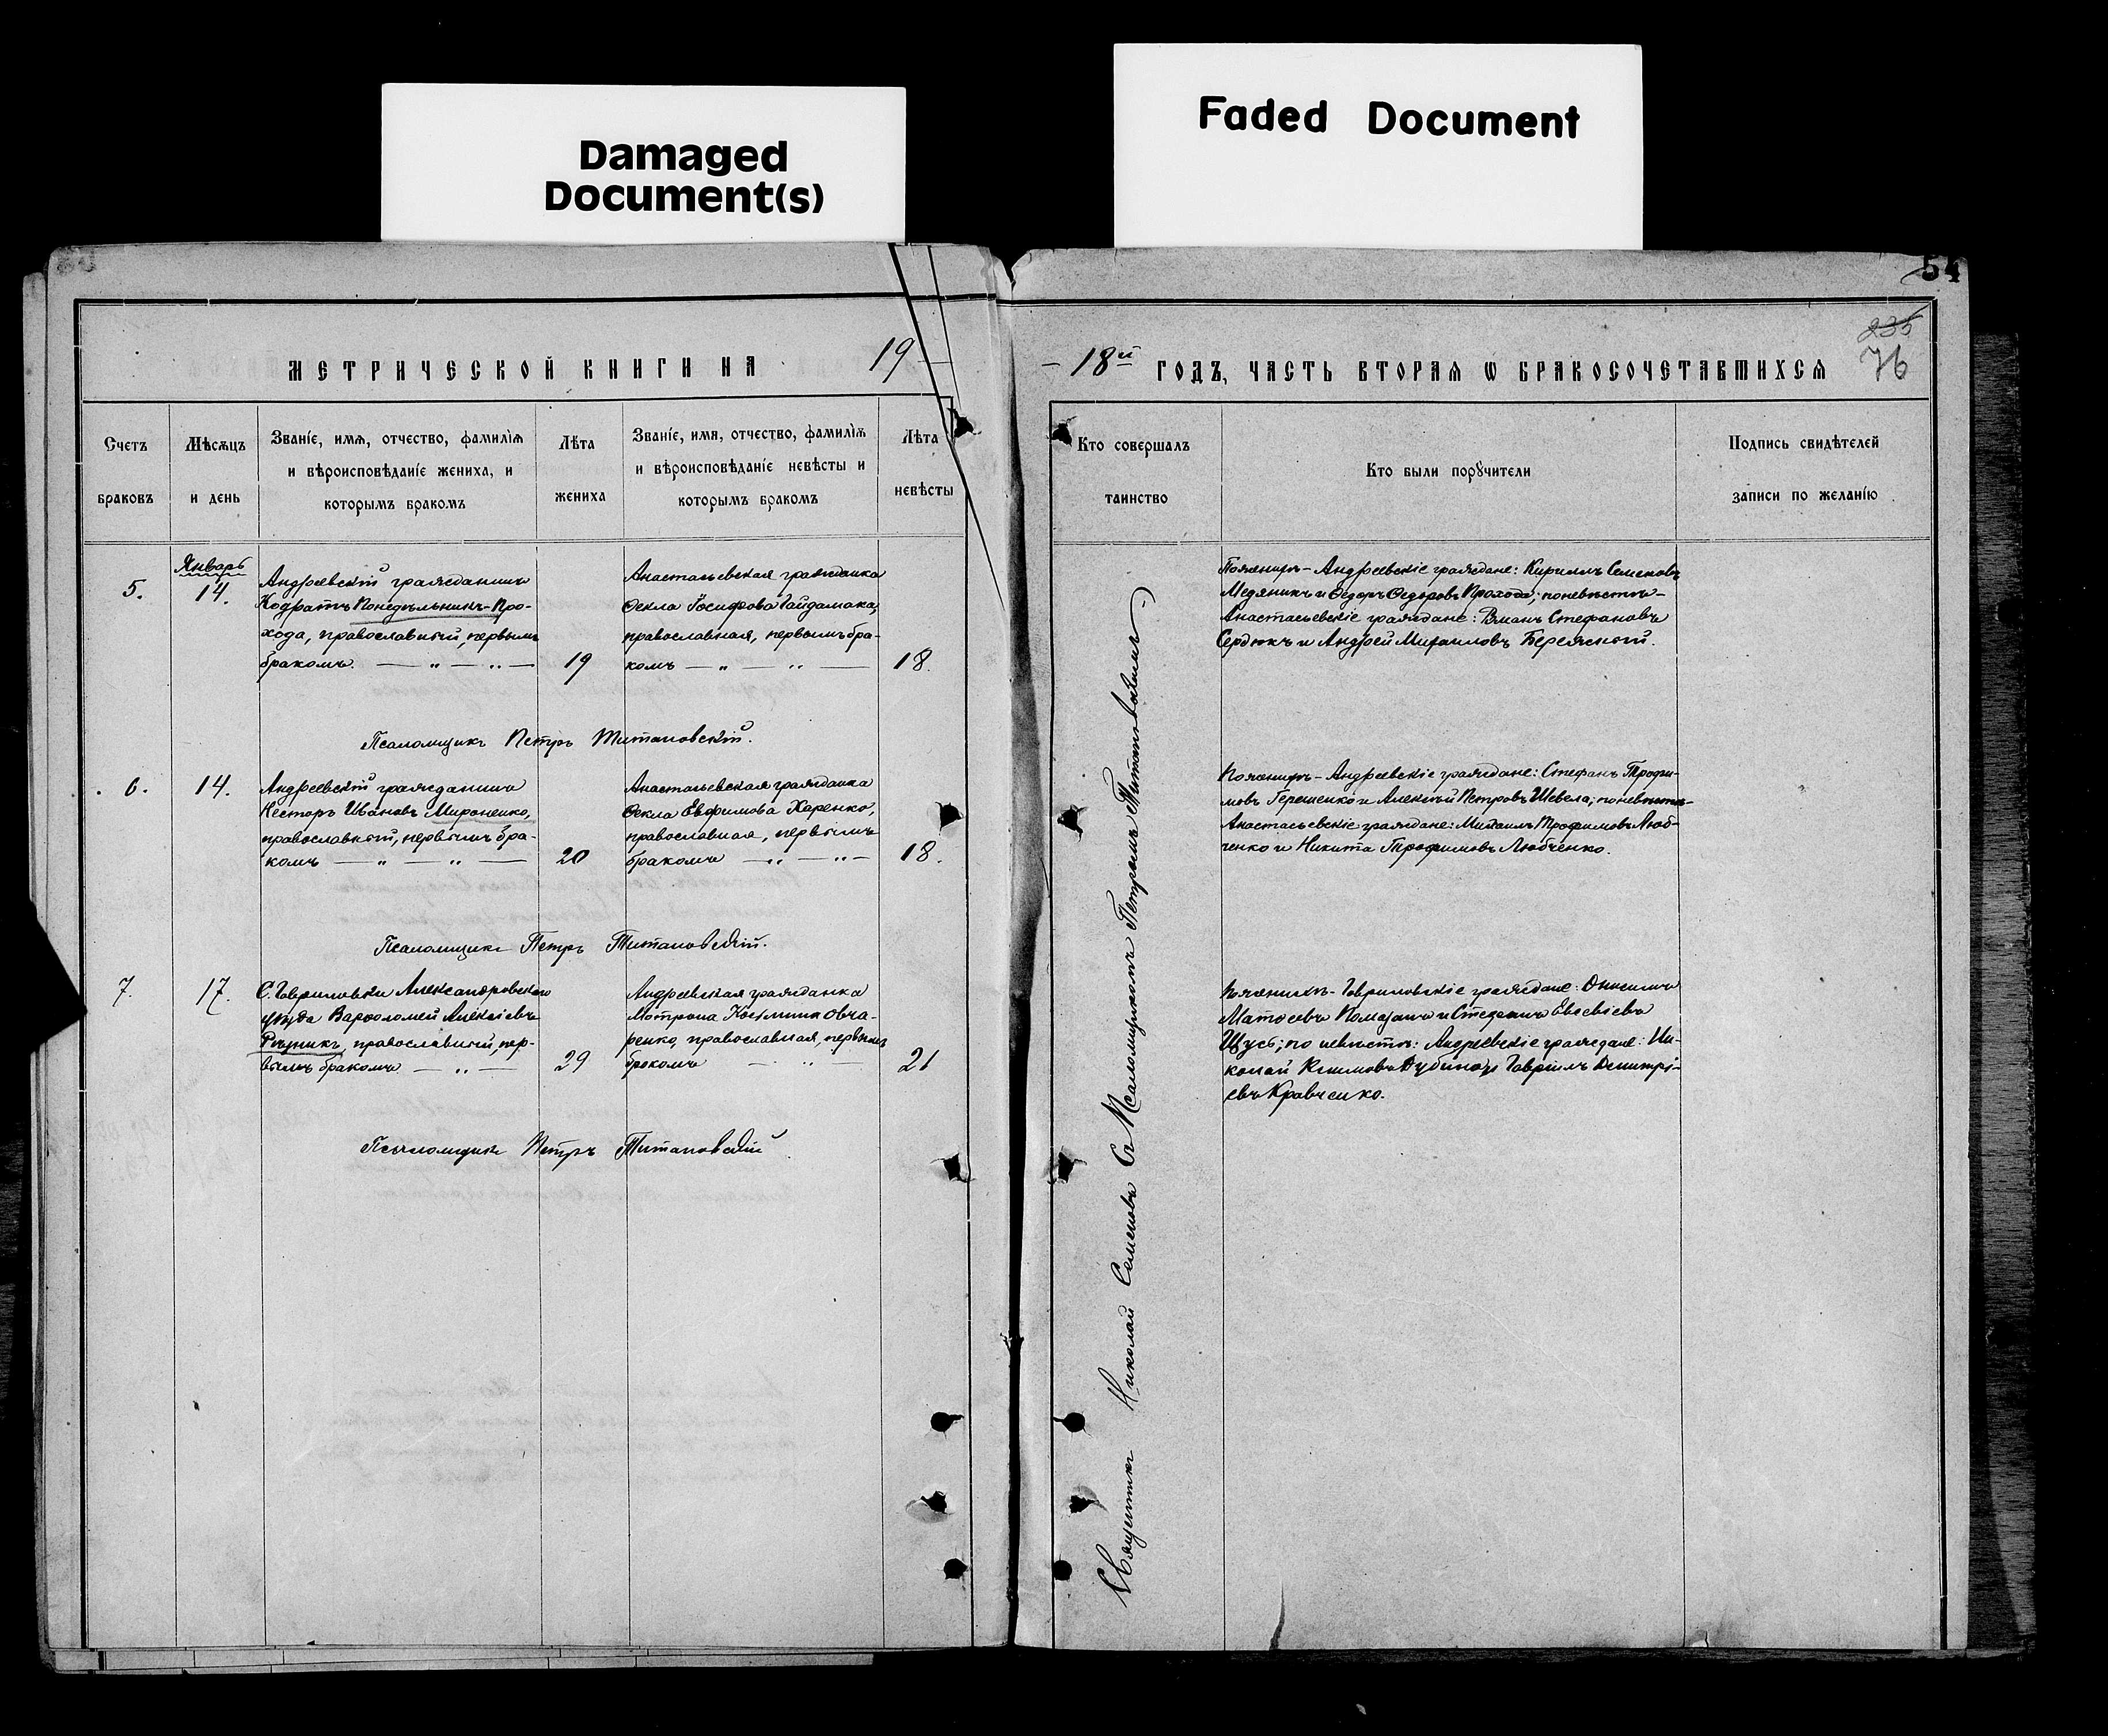 Damaged
Document(s)
Faded Document
54
235
76
МЕТРИЧЕСКОЙ КНИГИ НА 19
18й ГОДЪ, ЧАСТЬ ВТОРАЯ Ѡ БРАКОСОЧЕТАВШИХСЯ
Счетъ
браковъ
Мѣсяцъ
и день
Званіе, имя, отчество, фамилія
и вѣроисповѣданіе жениха, и
которымъ бракомъ
Лѣта
жениха
Званіе, имя, отчество, фамилія
и вѣроисповѣданіе невѣсты и
которымъ бракомъ
Лѣта
невѣсты
Кто совершалъ
таинство
Кто были порꙋчители
Подпись свидѣтелей
записи по желанію
5.
Январь
14.
Андреевскій гражданинъ
Кодратъ Понедѣльникъ-Про-
хода, православный, первымъ
бракомъ. — „ — „ —
19
Анастасьевская гражданка
Ѳекла Іосифова Гайдамака,
православная, первымъ бра-
комъ — „ — „ —
18.
Священникъ Николай Семеновъ Съ Псаломщикомъ Петромъ
По женихѣ - Андреевскіе граждане: Кириллъ Семеновъ
Медяникъ и Ѳедоръ Ѳедоровъ Прохода; по невѣстѣ -
Анастасьевскіе граждане: Стефановъ
Сердюкъ и Андрей Михаиловъ Бережной.
Псаломщикъ Петръ Титановскій.
6.
14.
Андреевскій гражданинъ
Несторъ Ивановъ Мироненко,
православный, первымъ бра-
комъ — „ — „ —
20
Анастасьевская гражданка
Ѳекла Евфимова Харенко,
православная, первымъ
бракомъ — „ — „ —
18.
По женихѣ - Андреевскіе граждане: Стефанъ Трофи-
мовъ Герещенко и Алексѣй Петровъ Шевела; по невѣстѣ -
Анастасьевскіе граждане: Михаилъ Трофимовъ Люб-
ченко и Никита Трофимовъ Любченко.
Псаломщикъ Петръ Титановскій.
7.
17.
С. Гавриловки Александровскаго
уѣзда Варѳоломей Алексіевъ
Рѣзникъ, православный, пер-
вымъ бракомъ — „ —
29
Андреевская гражданка
Мотрона Косьмина Овча-
ренко, православная, первымъ
бракомъ — „ —
21
По женихѣ - Гавриловскіе граждане: Онисимъ
Матѳеевъ Помазанъ и Стефанъ Евсевіевъ
Щусь; по невѣстѣ: Андреевскіе граждане: Ни-
колай Климовъ Дубина и Гавріилъ Димитрі-
евъ Кравченко.
Псаломщикъ Петръ Титановскій